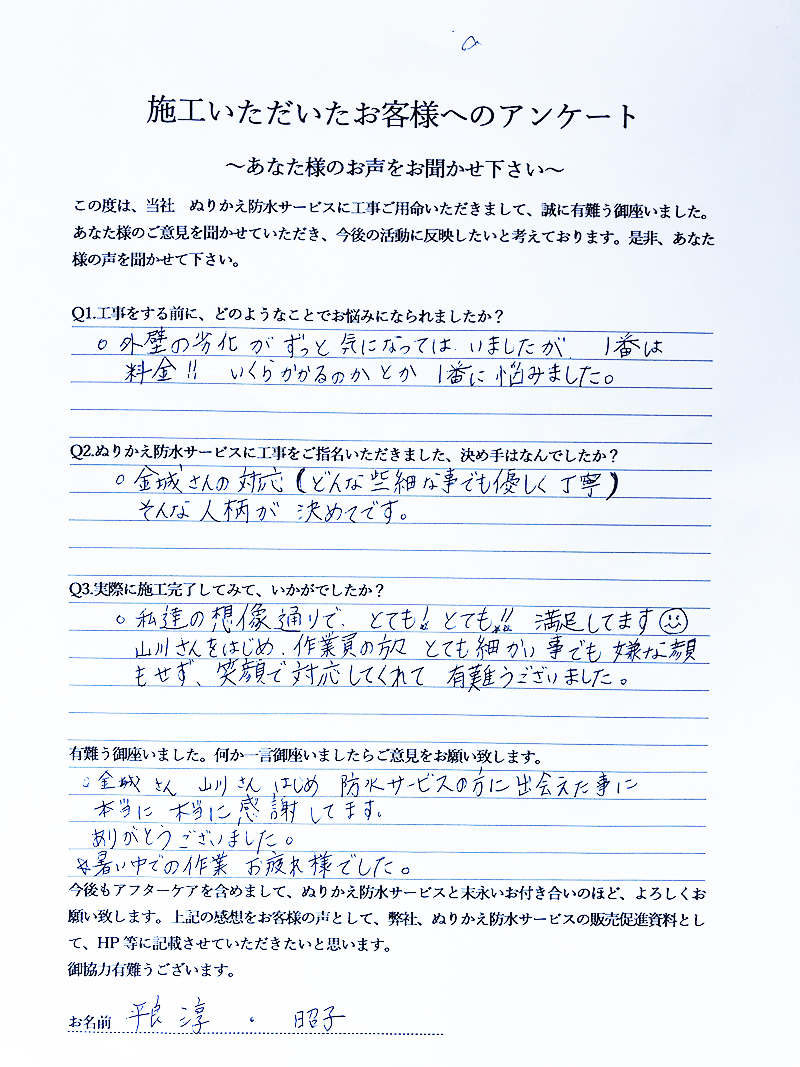 施工いただいたお客様へのアンケート
〜あなた様のお声をお聞かせ下さい〜
この度は、当社　ぬりかえ防水サービスに工事ご用命いただきまして、誠に有難う御座いました。
あなた様のご意見を聞かせていただき、今後の活動に反映したいと考えております。是非、あなた
様の声を聞かせて下さい。
Q1.工事をする前に、どのようなことでお悩みになられましたか？
○ 外壁の劣化が ずっと 気になっては いましたが 1番は
料金!! いくらかかるのか とか 1番に 悩みました。
Q2.ぬりかえ防水サービスに工事をご指名いただきました、決め手はなんでしたか？
○ 金城さんの 対応 (どんな些細な事でも優しく 丁寧)
そんな 人柄が 決めてです。
Q3.実際に施工完了してみて、いかがでしたか？
○ 私達の 想像通りで、とても! とても!! 満足してます☺
山川さんをはじめ、作業員の方々 とても細かい 事でも 嫌な顔
もせず、笑顔で 対応してくれて 有難うございました。
有難う御座いました。何か一言御座いましたらご意見をお願い致します。
○ 金城さん 山川さん はじめ 防水サービスの方に 出会えた事に
本当に 本当に 感謝してます。
ありがとうございました。
☆暑い中での作業 お疲れ様でした。
今後もアフターケアを含めまして、ぬりかえ防水サービスと末永いお付き合いのほど、よろしくお
願い致します。上記の感想をお客様の声として、弊社、ぬりかえ防水サービスの販売促進資料とし
て、HP 等に記載させていただきたいと思います。
御協力有難うございます。
お名前 平良 淳 ・ 昭子